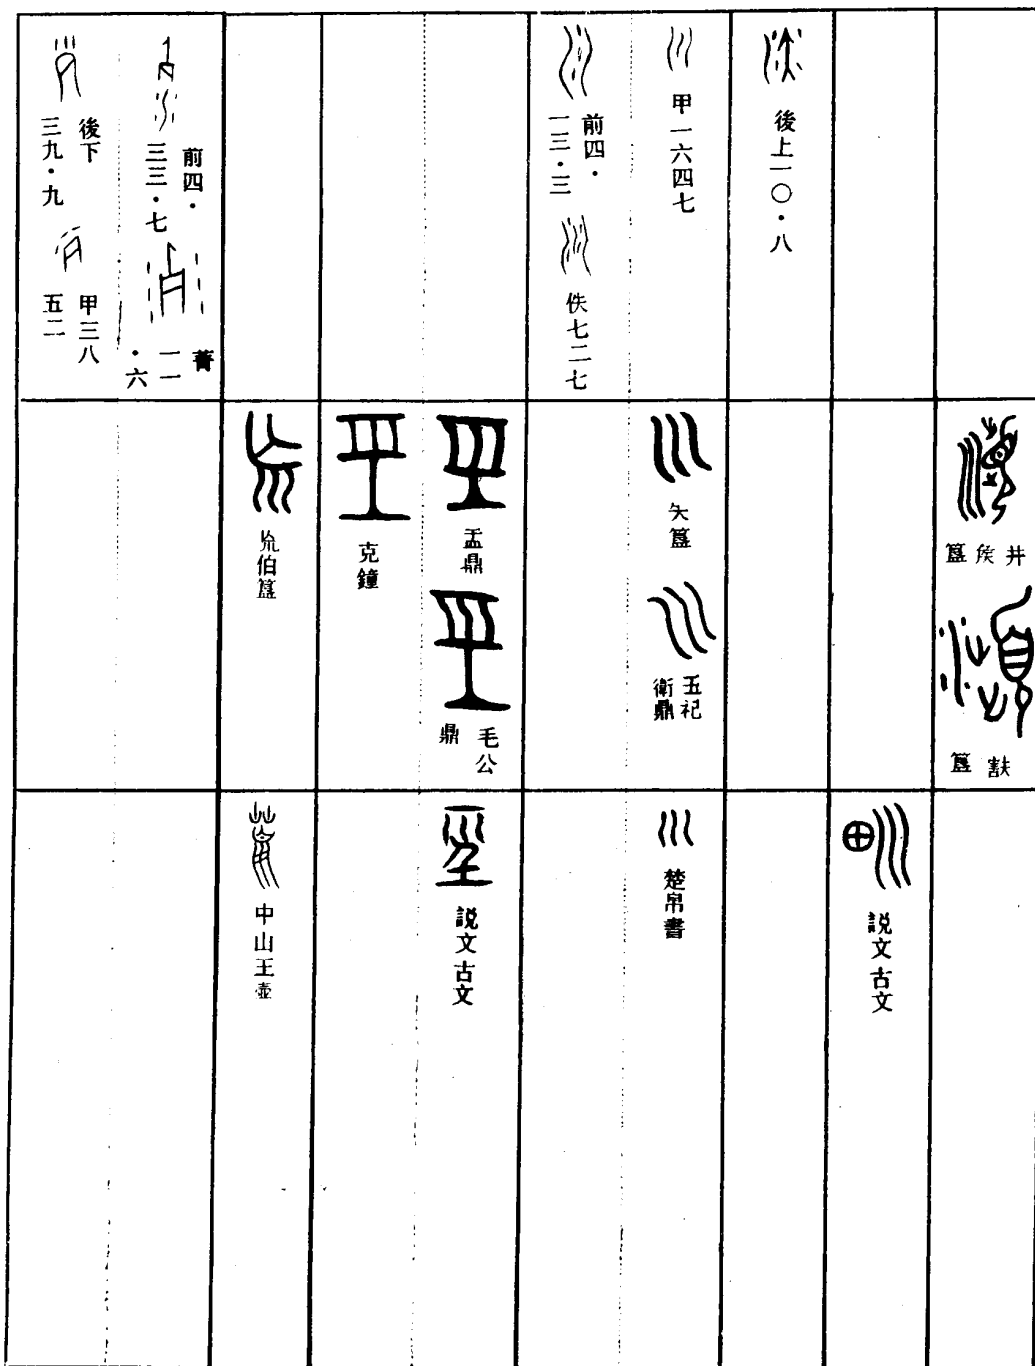 後上一〇·八
甲一六四七
前四·
一三·三
佚七二七
前四·
三三·七
菁
一一
·六
後下
三九·九
甲三八
五二
井侯簋
㝬簋
夨簋
五祀
衛鼎
盂鼎
毛公
鼎
克鐘
巟伯簋
説文古文
楚帛書
説文古文
中山王壺